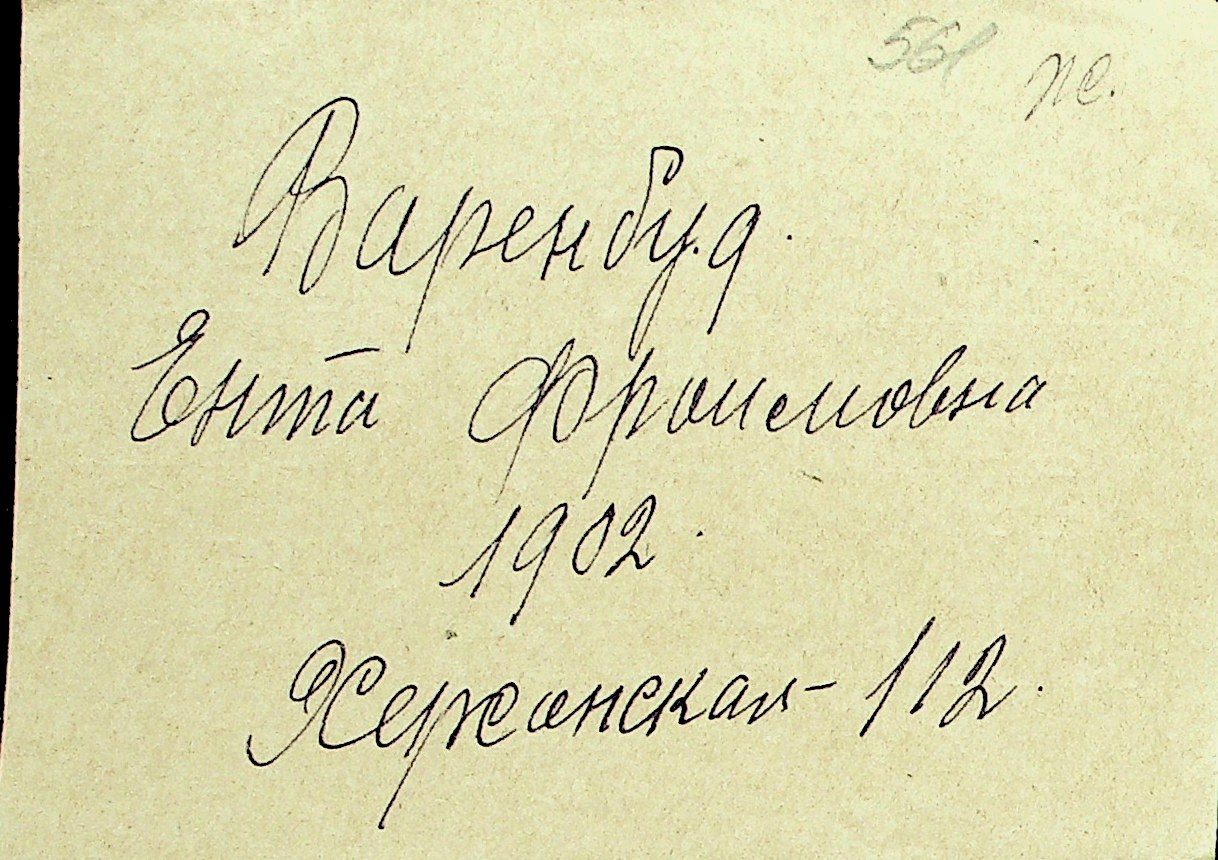 561 ж.
Варенбуд.
Ента Фроимовна
1902.
Херсонская - 112.